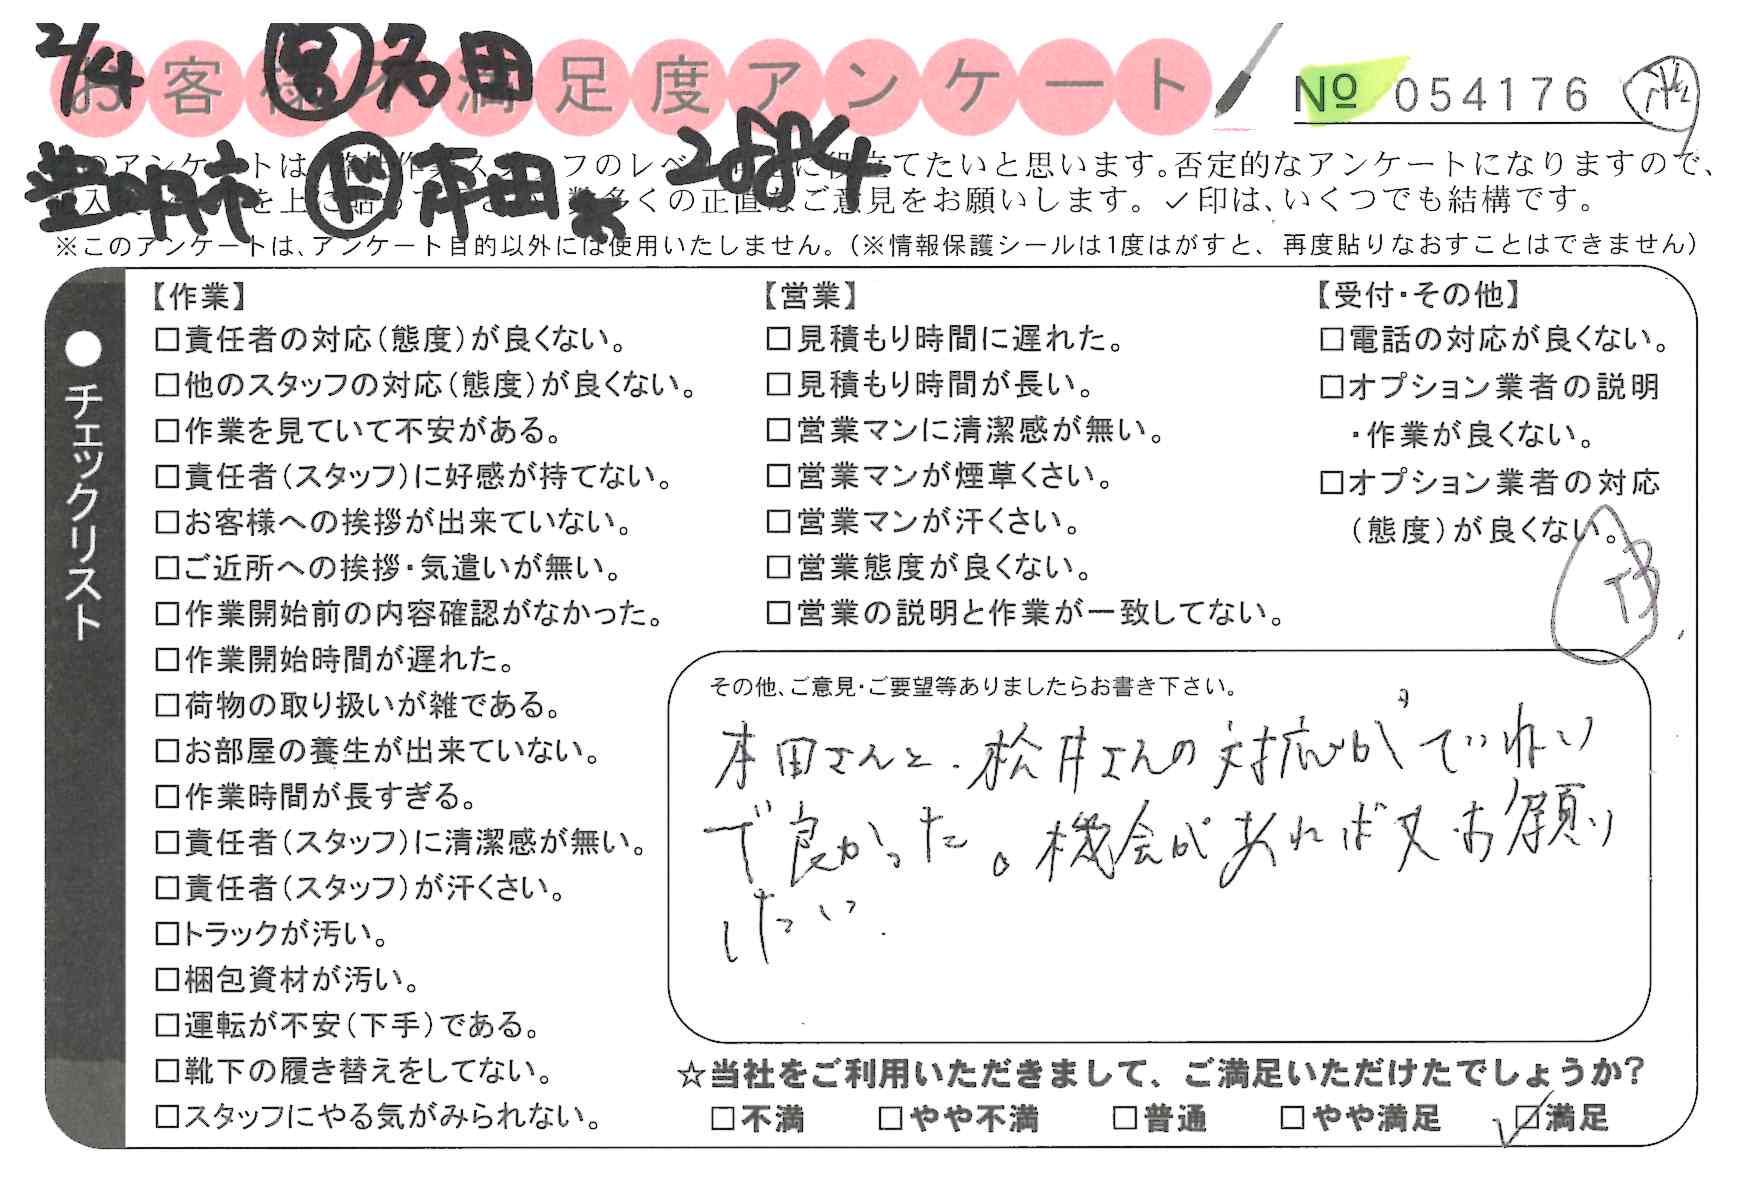 2/4 ㊂名田
お客様不満足度アンケート
№ 054176
豊明市 ド 本田 2884
このアンケートは、弊社作業スタッフのレベル向上に役立てたいと思います。否定的なアンケートになりますので、
を上に貼って 数多くの正直なご意見をお願いします。✓印は、いくつでも結構です。
※このアンケートは、アンケート目的以外には使用いたしません。(※情報保護シールは1度はがすと、再度貼りなおすことはできません)
●チェックリスト
【作業】
□責任者の対応(態度)が良くない。
□他のスタッフの対応(態度)が良くない。
□作業を見ていて不安がある。
□責任者(スタッフ)に好感が持てない。
□お客様への挨拶が出来ていない。
□ご近所への挨拶・気遣いが無い。
□作業開始前の内容確認がなかった。
□作業開始時間が遅れた。
□荷物の取り扱いが雑である。
□お部屋の養生が出来ていない。
□作業時間が長すぎる。
□責任者(スタッフ)に清潔感が無い。
□責任者(スタッフ)が汗くさい。
□トラックが汚い。
□梱包資材が汚い。
□運転が不安(下手)である。
□靴下の履き替えをしてない。
□スタッフにやる気がみられない。
【営業】
□見積もり時間に遅れた。
□見積もり時間が長い。
□営業マンに清潔感が無い。
□営業マンが煙草くさい。
□営業マンが汗くさい。
□営業態度が良くない。
□営業の説明と作業が一致してない。
【受付・その他】
□電話の対応が良くない。
□オプション業者の説明
・作業が良くない。
□オプション業者の対応
(態度)が良くない。
その他、ご意見・ご要望等ありましたらお書き下さい。
本田さんと、松井さんの対応がていねい
で良かった。機会があれば又お願い
したい.
☆当社をご利用いただきまして、ご満足いただけたでしょうか?
□不満 □やや不満 □普通 □やや満足 ☑満足